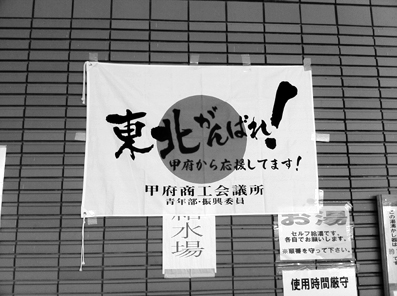 東北がんばれ!
甲府から応援してます!
甲府商工会議所
青年部・振興委員
給水場
お湯
セルフ給湯です。
各自でお願いします。
※順番を守って下さい。
使用時間厳守